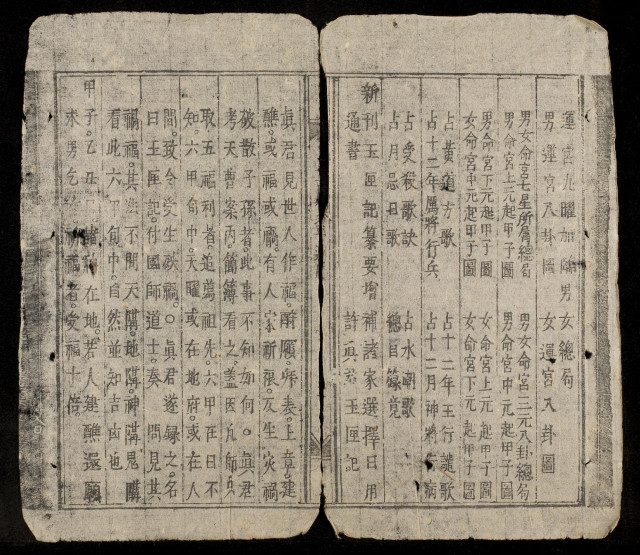 運宮九曜加臨男女總局
男運宮八卦圖 女運宮八卦圖
男女命宮七星所屬總局 男女命宮三元八卦總局
男命宮上元起甲子圖 男命宮中元起甲子圖
男命宮下元起甲子圖 女命宮上元起甲子圖
女命宮中元起甲子圖 女命宮下元起甲子圖
占黃道方歌 占十二年玉行譴歌
占十二年厲將行兵 占十二月神將行病
占受殺歌訣 占水潮歌
占月忌日歌 總目篆竟
新刊玉匣記纂要增補諸家選擇日用
通書 許真君玉匣記
真君見世人作福。酧願。所表。上章。建
醮。或福或禍。有人家祈禳。反生灾禍
破散子孫者。此事不知如何。真君
考天曹案內。簡簿看之。盖因凡師兵
取五福利者。追薦祖先。六甲在日不
知。六甲旬中。天曜或在地府。或在人
間。致令受生殃禍。○真君遂錄之。名
曰玉匣記。付國師道士。奏 問見其
禍福。其 不問天隣。地隣。神隣。鬼隣
看此六 旬中。自然並知吉凶也
甲子。乙丑 諸神在地。若人建醮還願
求男乞 福者。受福十倍。